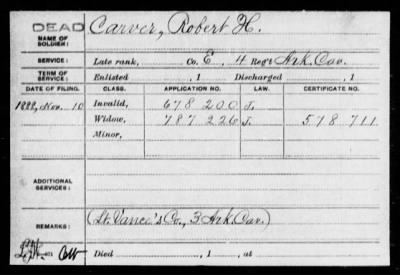 DEAD
NAME OF SOLDIER: Carver, Robert H.
SERVICE: Late rank, Co. E, 4 Reg't Ark. Cav.
TERM OF SERVICE: Enlisted , 1 Discharged , 1
DATE OF FILING. CLASS. APPLICATION NO. LAW. CERTIFICATE NO.
1888, Nov. 10 Invalid, 678 200 J.
Widow, 787 226 J. 578 711
Minor,
ADDITIONAL SERVICES:
REMARKS: (Lt. Vance's Co., 3 Ark. Cav.)
Died , 1 , at